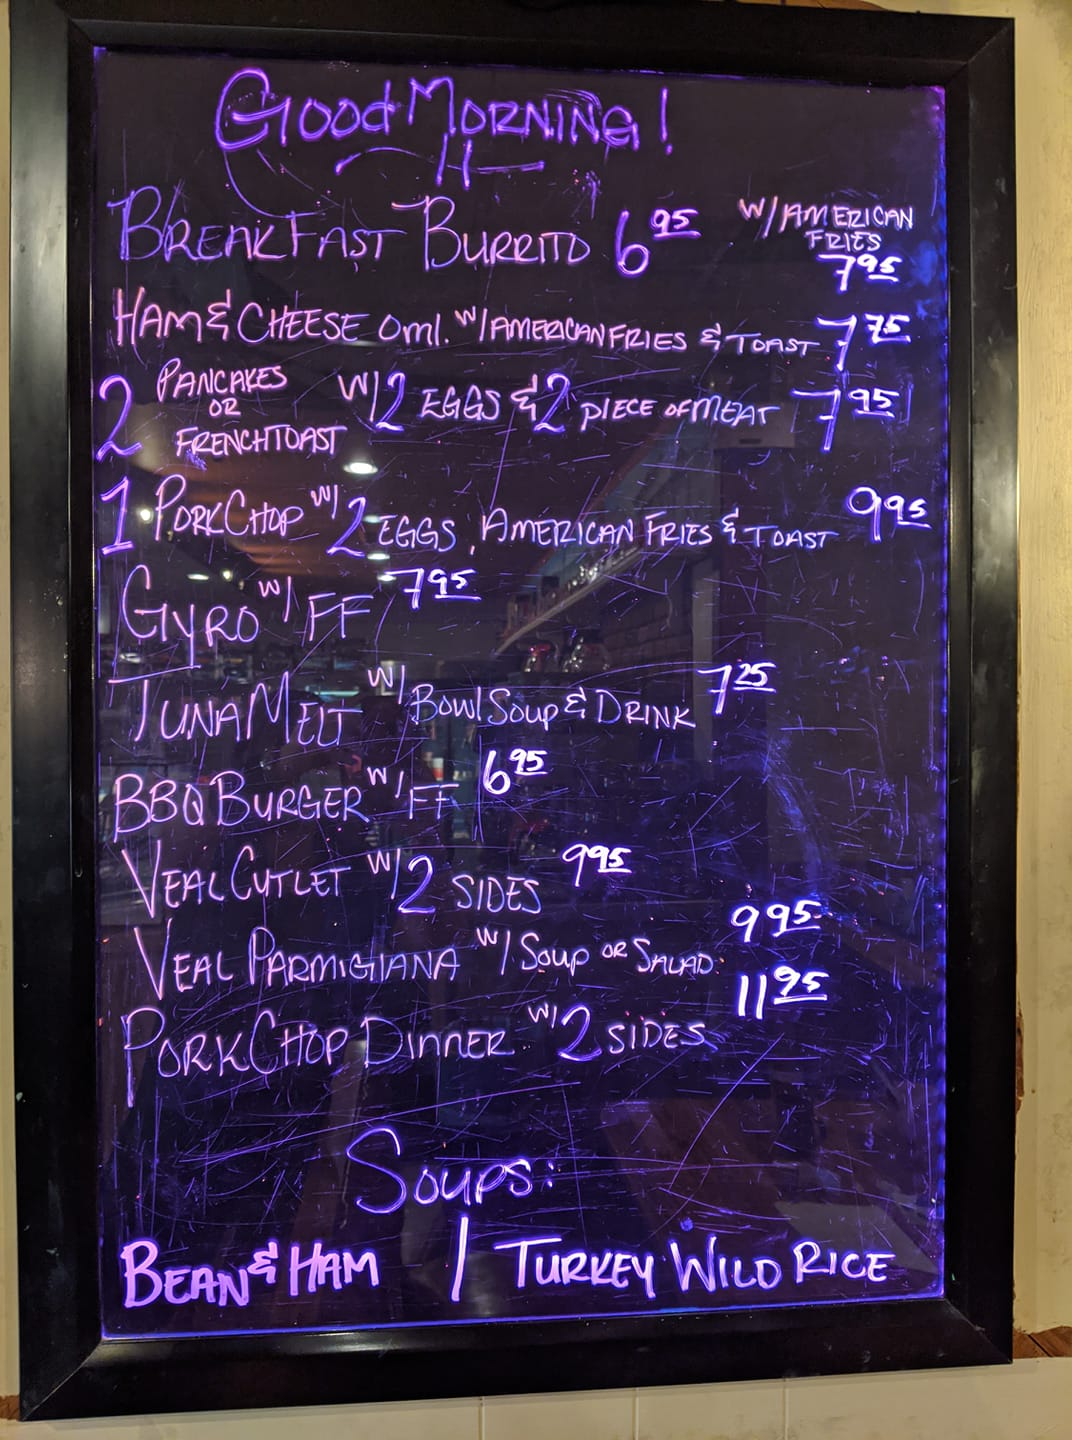 Good Morning!
Breakfast Burrito 6 95 w/American Fries 7 95
Ham & Cheese Oml. w/American Fries & Toast 7 75
2 Pancakes or French Toast w/2 Eggs & 2 piece of Meat 7 95
1 Pork Chop w/ 2 Eggs, American Fries & Toast 9 95
Gyro w/ FF 7 95
Tuna Melt w/ Bowl Soup & Drink 7 25
BBQ Burger w/ FF 6 95
Veal Cutlet w/2 Sides 9 95
Veal Parmigiana w/ Soup or Salad 9 95
Pork Chop Dinner w/ 2 Sides 11 95
Soups:
Bean & Ham / Turkey Wild Rice